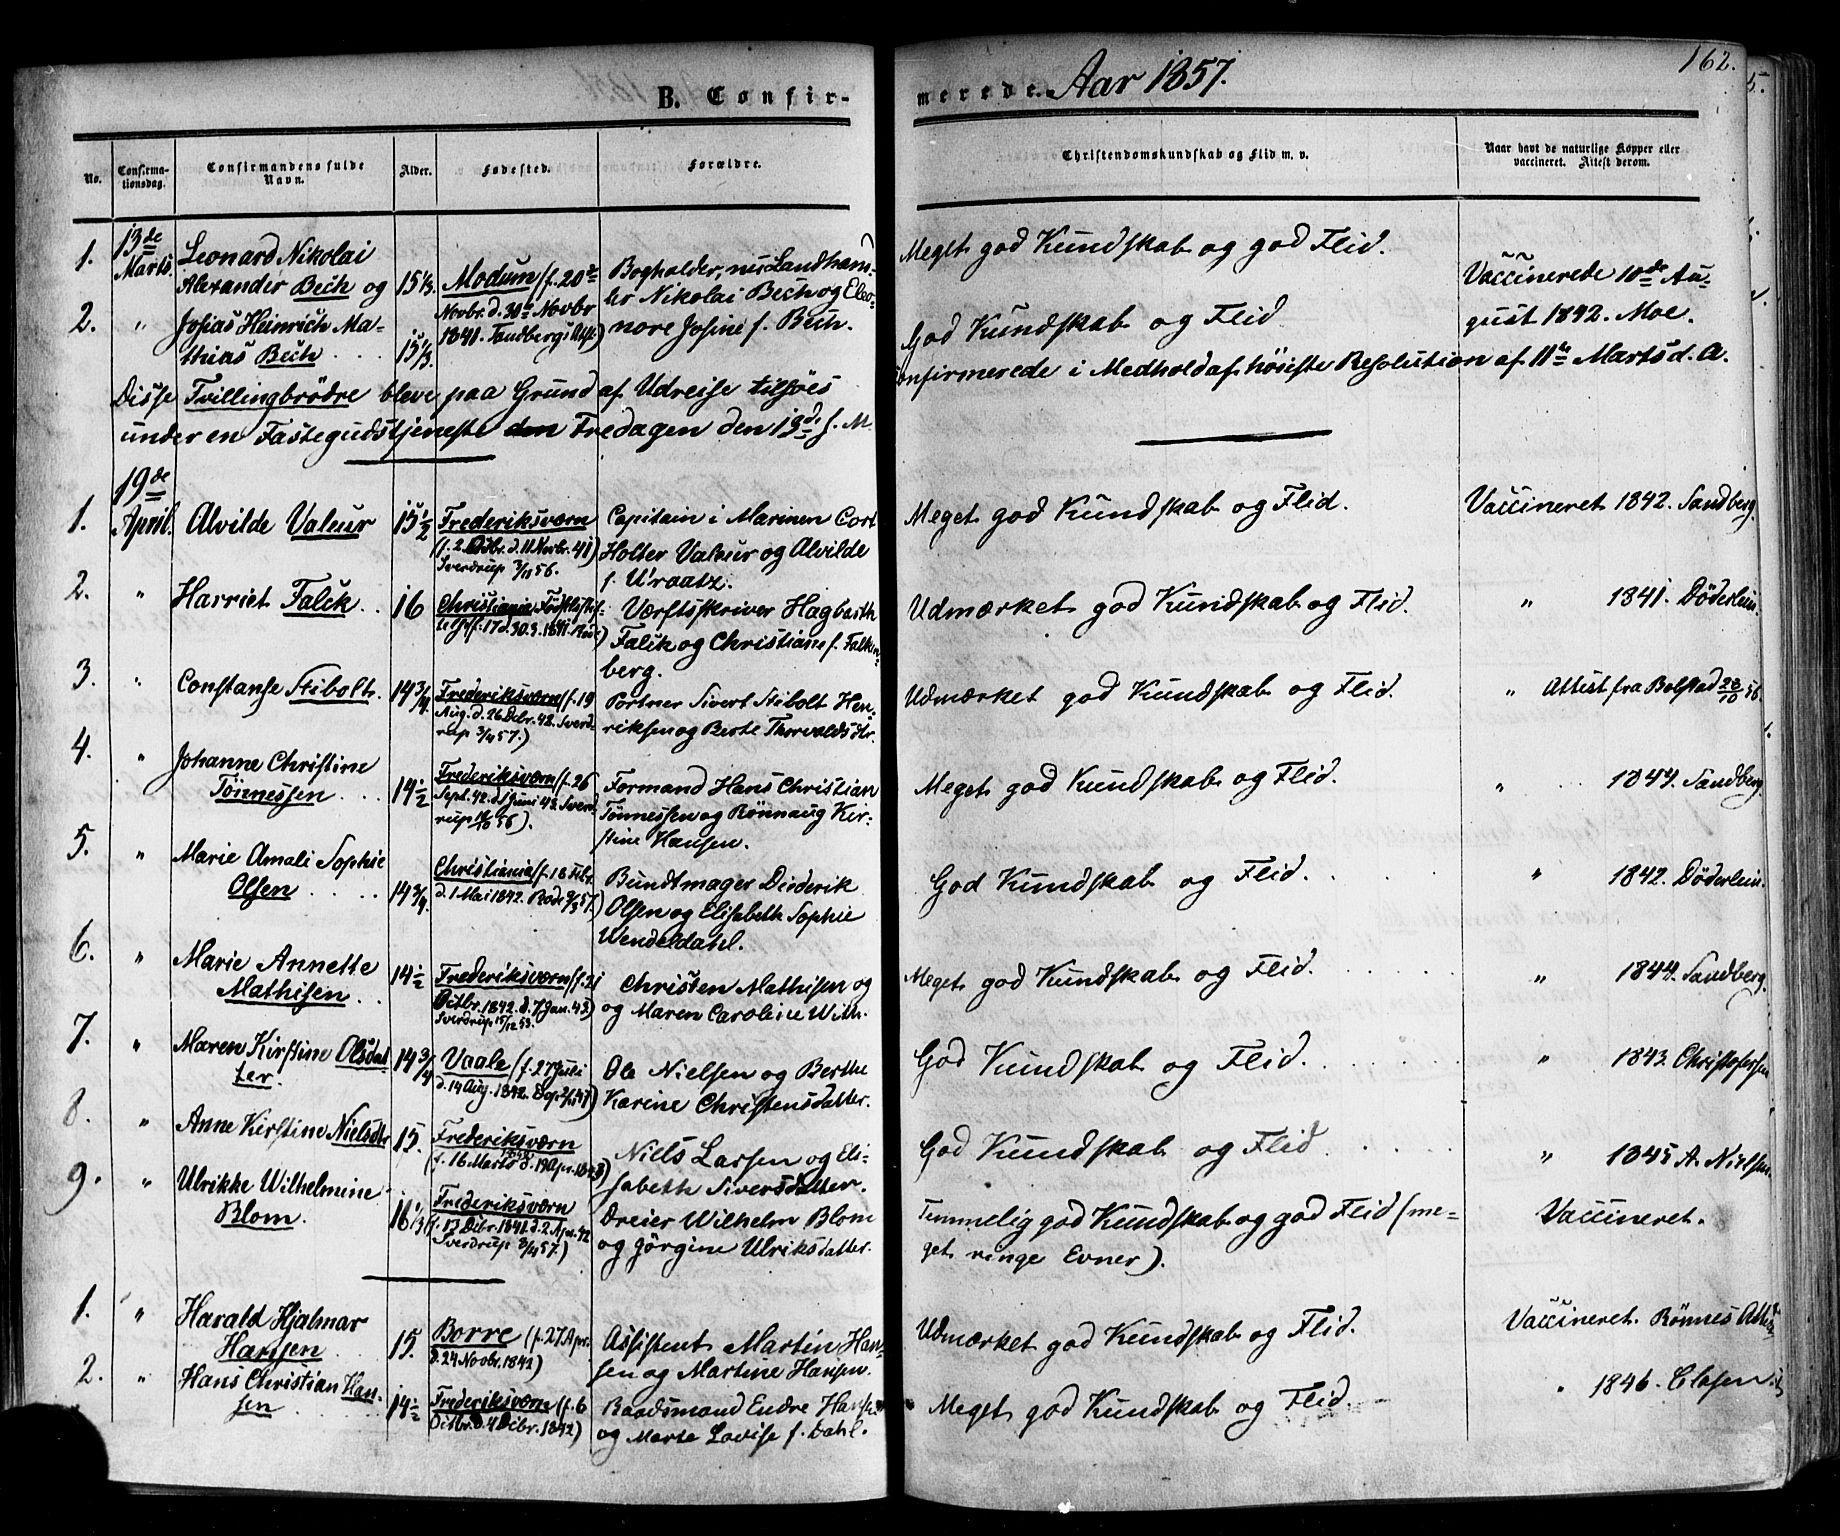 162.
B. Confir-
merede. Aar 1857.
No.
Confirma-
tionsdag.
Confirmandens fulde
Navn.
Alder.
Fødested.
Forældre.
Christendomskundskab og Flid m. v.
Naar havt de naturlige Kopper eller
vaccineret. Attest derom.
1. 13de Marts. Leonard Nikolai
Alexander Bech og
15 1/3. Modum (f. 20de
Novbr. d. 30te Novbr
1841.
Bogholder, nu Landhand-
ler Nikolai Bech og Eleo-
nore Josine f. Bech.
Meget god Kundskab og god Flid.
Vaccinerede 10de Au-
gust 1842. Moe.
2. " Josias Heinrich Ma-
thias Bech . . .
15 1/3.
God Kundskab og Flid
Disse Tvillingbrödre bleve paa Grund af Udreise tilsöes confirmerede i Medhold af höieste Resolution af 11te Marts d. A.
under en Fastegudstjeneste Fredagen den 13de s. M.
19de
1. April. Alvilde Valeur
15 1/2 Frederiksværn
d. 11 Novbr. 41)
Sverdrup 3/11 56.
Capitain i Marinen Cort
Holter Valeur og Alvilde
f.
Meget god Kundskab og Flid.
Vaccineret 1842. Sandberg.
2. " Harriet Falck . .
16 Christiania
Værftsskriver Hagbarth
Falck og Christiane f. Falken-
berg.
Udmærket god Kundskab og Flid.
" 1841. Döderlein.
3. " Constanse Stibolt.
14 3/4. Frederiksværn (f. 19
Aug. d. 26 Debr. 42. Sverd-
rup 3/4 57.)
Portner Sivert Stibolt Hen-
riksen og Berte Thorvaldsdtr.
Udmærket god Kundskab og Flid.
" Attest fra Bolstad 28/10 56.
4. " Johanne Christine
Tönnessen . . .
14 1/2 Frederiksværn (f. 26
Sept. 42. d. 5 Juni 43. Sverd-
rup 56).
Formand Hans Christian
Tönnessen og Rönnaug Kir-
stine Hansen.
Meget god Kundskab og Flid.
" 1844. Sandberg.
5. " Marie Amali Sophie
Olsen . . . .
14 3/4. Christiania (f. 18 Febr.
d. 1 Mai 1842. Rode 9/3 57.)
Bundtmager Diederik
Olsen og Elisabeth Sophie
Wendeldahl.
God Kundskab og Flid. . . .
" 1842. Döderlein.
6. " Marie Annette
Mathisen . .
14 1/2 Frederiksværn (f. 21
Octbr. 1842. d. 7 Jan. 43.)
Sverdrup 15/12 53.
Christen Mathisen og
og Maren Caroline With.
Meget god Kundskab og Flid. . . .
" 1844. Sandberg.
7. " Maren Kirstine Olsdat
ter.
14 3/4 Vaale (f. 27 Juli
d. 14 Aug. 1842.
Ole Nielsen og Berthe
Karine Christensdatter.
God Kundskab og Flid. . . .
" 1843. Christofersen
8. " Anne Kirstine Nielsdtr
15. Frederiksværn
(f. 16 Marts 1842 d. 19 Apr. 1843)
Niels Larsen og Eli-
sabeth Siversdatter.
God Kundskab og Flid . . .
" 1845 A. Nielsen.
9. " Ulrikke Wilhelmine
Blom.
16 1/3 Frederiksværn
f. 13 Debr. 1841. d. 2. Apr. 42
Sverdrup 3/4 57.)
Dreier Wilhelm Blom
og Jörgine Ulriksdatter.
Temmelig god Kundskab og god Flid (me-
get ringe Evner).
Vaccineret.
1. " Harald Hjalmar
Hansen . .
15. Borre (f. 27 Apr.
d. 24 Novbr. 1842)
Assistent Martin Han-
sen og Martine Hansen.
Udmærket god Kundskab og Flid.
Vaccineret. Rönnes Attest
2. " Hans Christian Han-
sen
14 1/2 Frederiksværn (f. 6
Octbr. d. 4 Debr. 1842)
Baadsmand Endre Hansen
og Marte Lovise f. Dahl.
Meget god Kundskab og Flid.
" 1846. Clasen